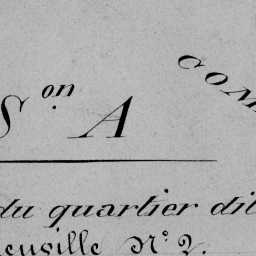 COM
S.on A
du quartier dit
euville N.o 2.